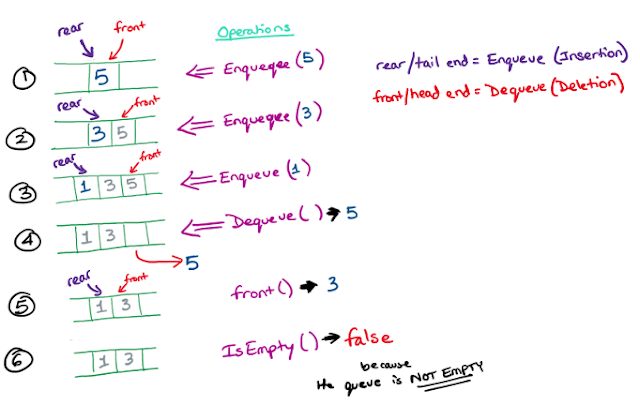 Operations
rear front
① 5 <= Enqueqee (5)
rear/tail end = Enqueue (Insertion)
front/head end = Dequeue (Deletion)
rear front
② 3 5 <= Enqueqee (3)
rear front
③ 1 3 5 <= Enqueue (1)
④ 1 3 <= Dequeue ( ) → 5
5
rear front
⑤ 1 3 front() → 3
⑥ 1 3 IsEmpty () → false
because
the queue is NOT EMPTY